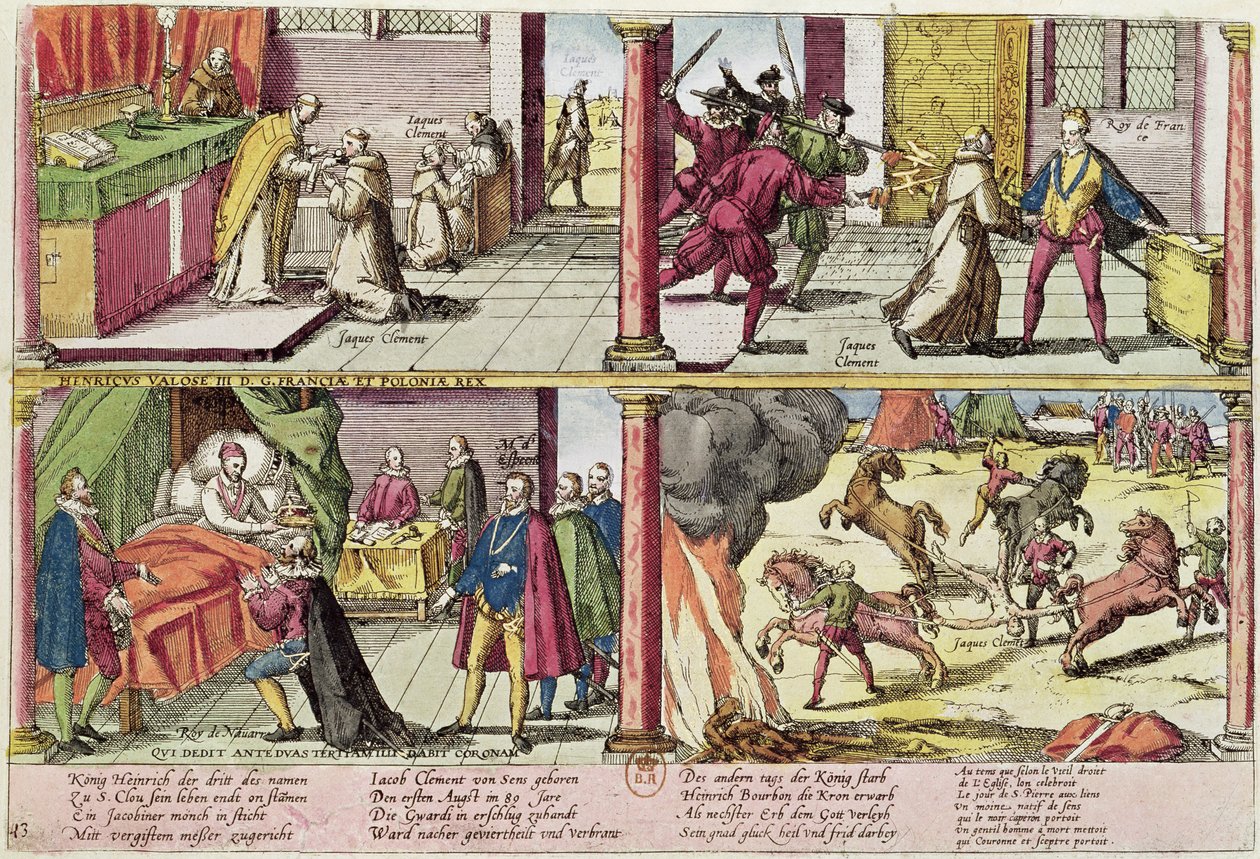 Iaques
Clement
Iaques
Clement
Jaques Clement
Roy de Fran
ce
Jaques
Clement
HENRICVS VALOSE III D. G. FRANCIÆ ET POLONIÆ REX
M. d'
Espern
Roy de Nauarr
Jaques Clement
QVI DEDIT ANTE DVAS DABIT CORONAM
König Heinrich der dritt des namen
Zu S. Clou sein leben endt on stam̃en
Ein Jacobiner mönch in sticht
Mitt vergiftem meßer zugericht
Iacob Clement von Sens geboren
Den ersten Augst im 89 Jare
Die Gwardi in erschlug zuhandt
Ward nacher geviertheilt vnd verbrant
Des andern tags der König starb
Heinrich Bourbon die Kron erwarb
Als nechster Erb dem Gott verleyh
Sein gnad gluck heil vnd frid darbey
Au tems que selon le vieil droiet
de L'Eglise, lon celebroit
Le jour de S. Pierre aux liens
vn moine natif de sens
qui le noir caperon portoit
vn gentil homme a mort mettoit
qui Couronne et sceptre portoit.
B.R
13